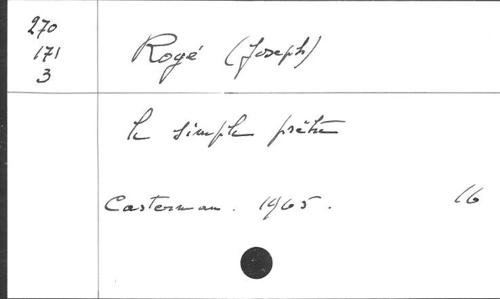 270
171
3
Rogé (Joseph)
le simple prêtre
Casterman. 1965.
16